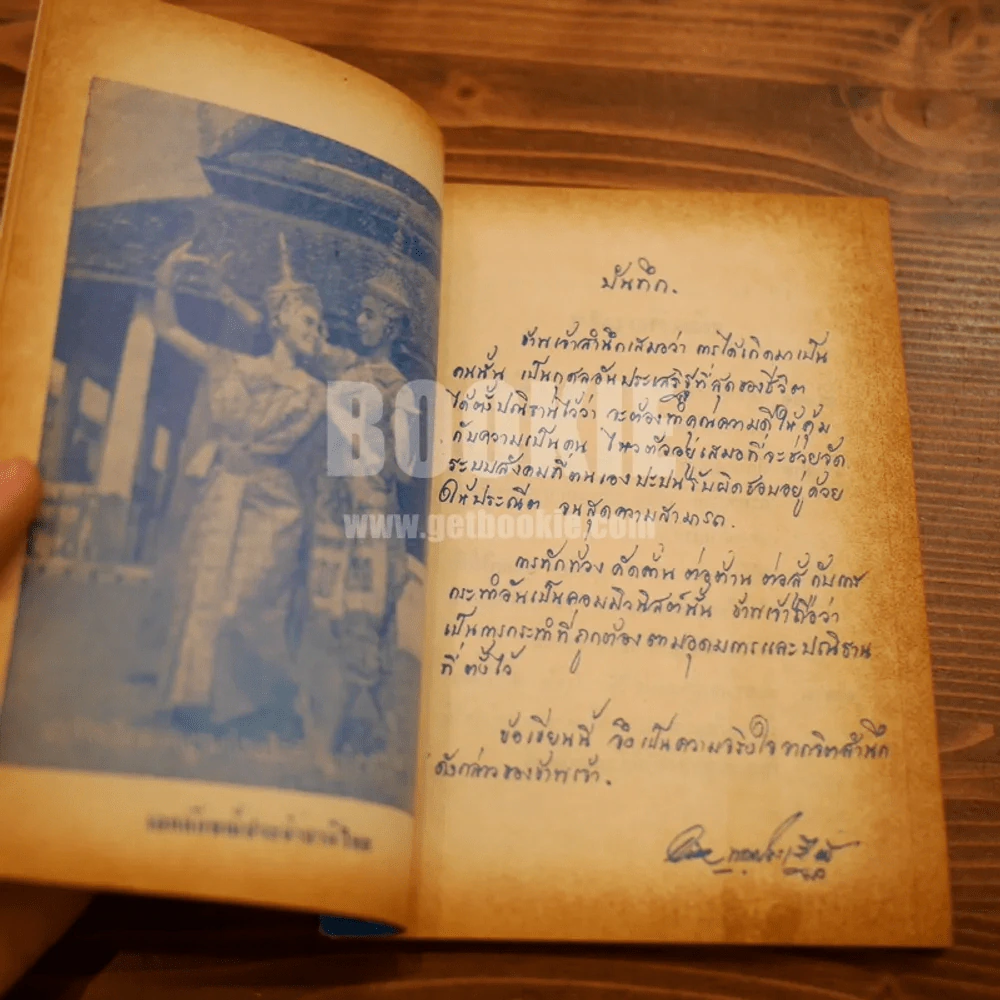 บันทึก.
ข้าพเจ้าสำนึกเสมอว่า การได้เกิดมาเป็น
คนนั้น เป็นกุศลอันประเสริฐที่สุดของชีวิต
ได้ตั้งปณิธานไว้ว่า จะต้องทำคุณความดีให้คุ้ม
กับความเป็นคน ไหวตัวอยู่เสมอที่จะช่วยจัด
ระบบสังคมที่ตนเองปะปนรับผิดชอบอยู่ด้วย
ให้ประณีต จนสุดความสามารถ.
การทักท้วง คัดค้าน ต่อต้าน ต่อสู้ กับการ
กระทำอันเป็นคอมมิวนิสต์นั้น ข้าพเจ้าถือว่า
เป็นการกระทำที่ถูกต้องตามอุดมการและปณิธาน
ที่ตั้งไว้
ข้อเขียนนี้ จึงเป็นความจริงใจจากจิตสำนึก
ดังกล่าวของข้าพเจ้า.
BOOKIE
www.getbookie.com